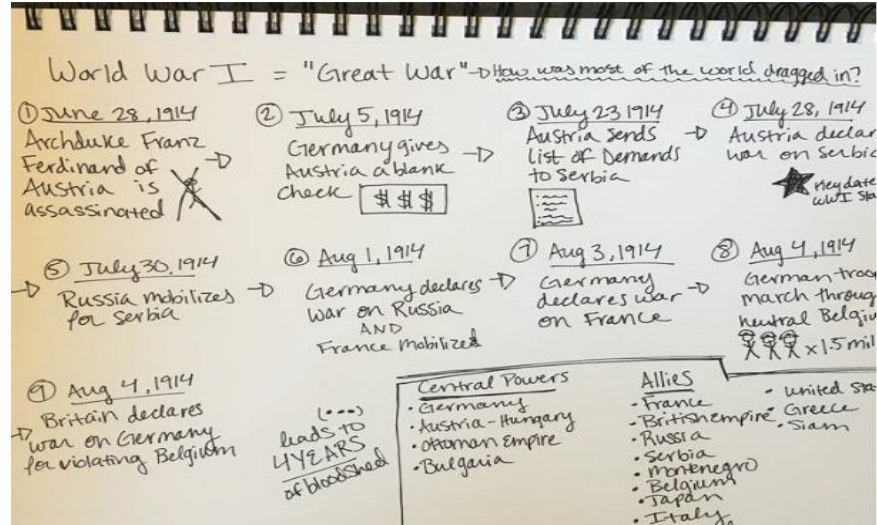 World War I = "Great War" → How was most of the world dragged in?
① June 28, 1914
Archduke Franz
Ferdinand of
Austria is
assassinated
② July 5, 1914
Germany gives
Austria a blank
check $ $ $
③ July 23 1914
Austria sends
list of Demands
to Serbia
④ July 28, 1914
Austria declar
war on Serbi
Key date
WWI Sta
⑤ July 30, 1914
Russia mobilizes
for Serbia
⑥ Aug 1, 1914
Germany declares
war on Russia
AND
France mobilized
⑦ Aug 3, 1914
Germany
declares war
on France
⑧ Aug 4, 1914
German troo
march throug
neutral Belgiu
x 1.5 mil
⑨ Aug 4, 1914
Britain declares
war on Germany
for violating Belgium
(...)
leads to
4 YEARS
of bloodshed
Central Powers
• Germany
• Austria-Hungary
• Ottoman Empire
• Bulgaria
Allies
• France
• British empire
• Russia
• Serbia
• Montenegro
• Belgium
• Japan
• Italy
• United Sta
• Greece
• Siam